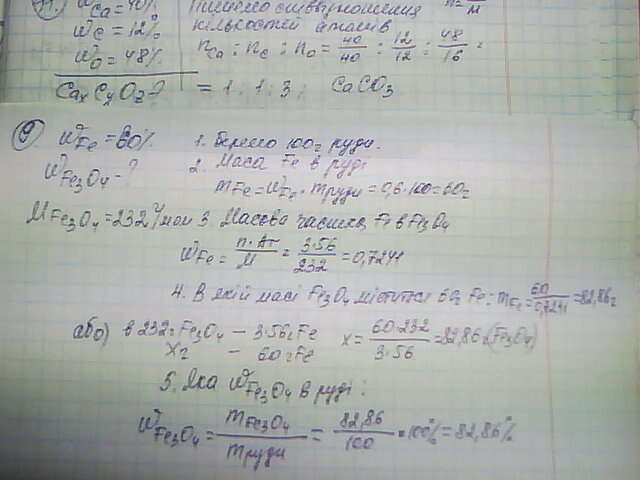 W Ca = 40%
Wc = 12%
Wo = 48%
CaxCyOz-?
кількостей атомів
nCa : nc : no = 40/40 : 12/12 : 48/16 =
= 1 : 1 : 3 ; CaCO3
9 WFe = 60%
WFe3O4 - ?
1. Беремо 100г руди.
2. Маса Fe в руді
mFe = WFe · mруди = 0,6·100 = 60г
MFe3O4 = 232 г/моль 3. Масова частка Fe в Fe3O4
WFe = n·Ar/M = 3·56/232 = 0,7241
4. В якій масі Fe3O4 міститься 60г Fe: mFe = 60/0,7241 = 82,86г
або) в 232г Fe3O4 — 3·56г Fe
xг — 60г Fe
x = 60·232/3·56 = 82,86г (Fe3O4)
5. Яка WFe3O4 в руді:
WFe3O4 = mFe3O4/mруди = 82,86/100 · 100% = 82,86%